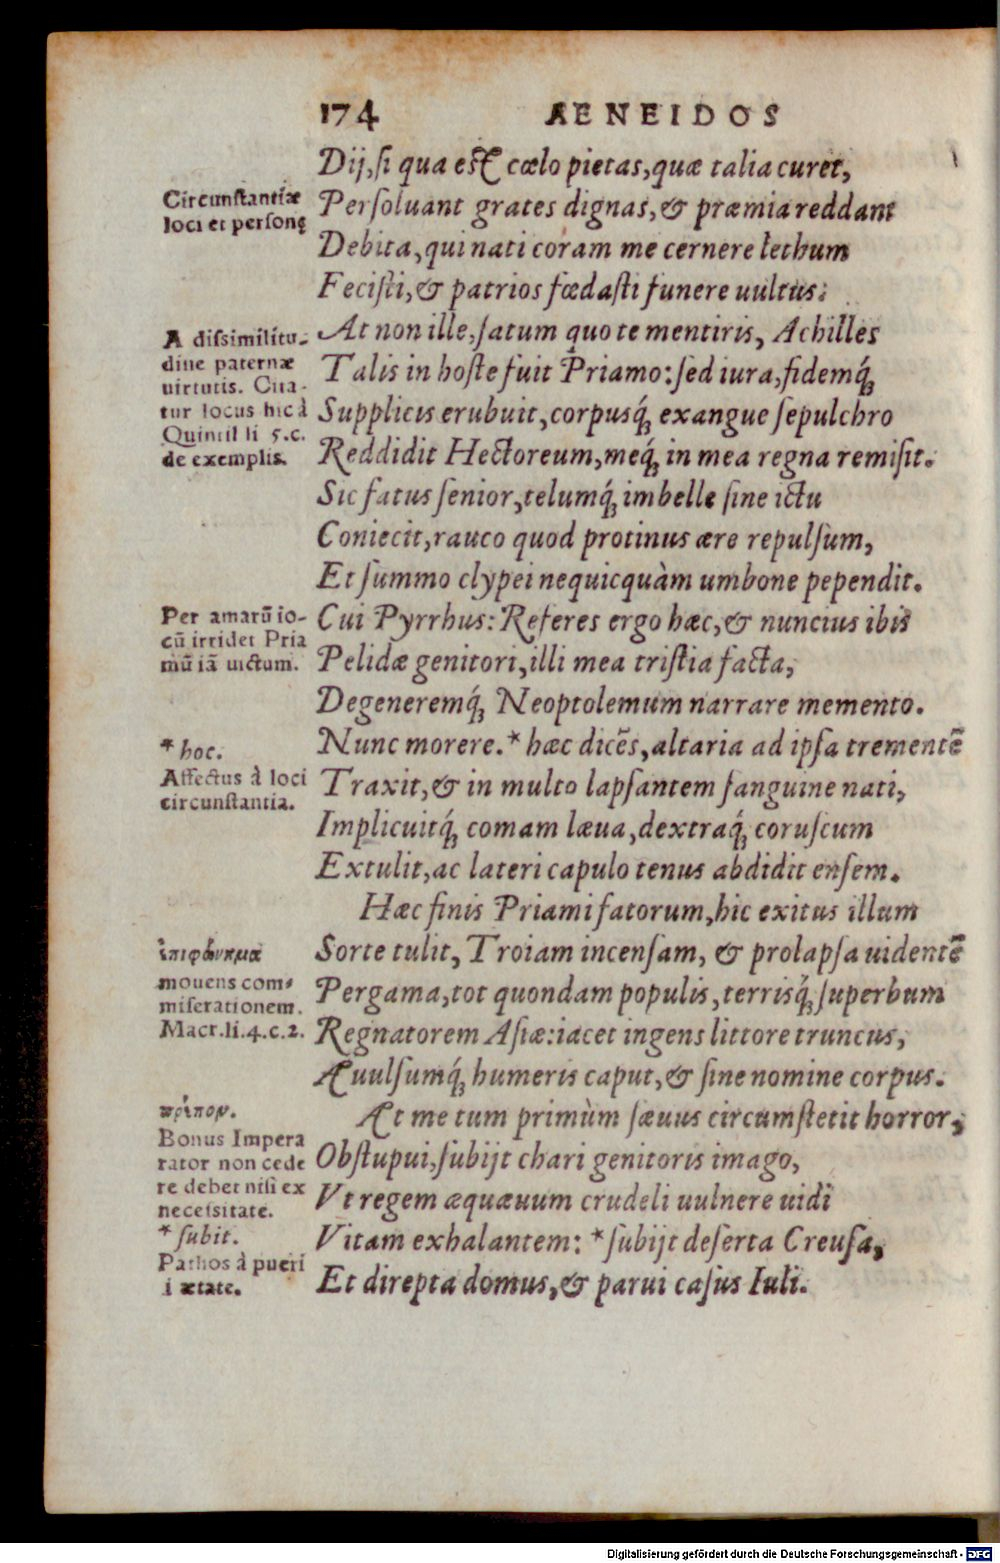 174 AENEIDOS
Dij, si qua est cœlo pietas, quæ talia curet,
Persoluant grates dignas, & præmia reddant
Debita, qui nati coràm me cernere lethum
Fecisti, & patrios fœdasti funere uultus.
At non ille, satum quo te mentiris, Achilles
Talis in hoste fuit Priamo: sed iura, fidemq́;
Supplicis erubuit, corpusq́; exangue sepulchro
Reddidit Hectoreum, meq́; in mea regna remisit.
Sic fatus senior, telumq́; imbelle sine ictu
Coniecit, rauco quod protinus ære repulsum,
Et summo clypei nequicquàm umbone pependit.
Cui Pyrrhus: Referes ergo hæc, & nuncius ibis
Pelidæ genitori, illi mea tristia facta,
Degeneremq́; Neoptolemum narrare memento.
Nunc morere. * hæc dicẽs, altaria ad ipsa trementẽ
Traxit, & in multo lapsantem sanguine nati,
Implicuitq́; comam læua, dextraq́; coruscum
Extulit, ac lateri capulo tenus abdidit ensem.
Hæc finis Priami fatorum, hic exitus illum
Sorte tulit, Troiam incensam, & prolapsa uidentẽ
Pergama, tot quondam populis, terrisq́; superbum
Regnatorem Asiæ: iacet ingens littore truncus,
Auulsumq́; humeris caput, & sine nomine corpus.
At me tum primùm sæuus circumstetit horror,
Obstupui, subijt chari genitoris imago,
Vt regem æquæuum crudeli uulnere uidi
Vitam exhalantem: * subijt deserta Creusa,
Et direpta domus, & parui casus Iuli.
Circunstantiæ
loci et personę
A dissimilitu-
dine paternæ
uirtutis. Cita-
tur locus hic à
Quintil li 5.c.
de exemplis.
Per amarũ io-
cũ irridet Pria
mũ iã uictum.
* hoc.
Affectus à loci
circunstantia.
ἐπιφώνημα
mouens com-
miserationem.
Macr.li.4.c.2.
πρέπον.
Bonus Impera
rator non cede
re debet nisi ex
necessitate.
* subit.
Pathos à pueri
i ætate.
Digitalisierung gefördert durch die Deutsche Forschungsgemeinschaft - DFG